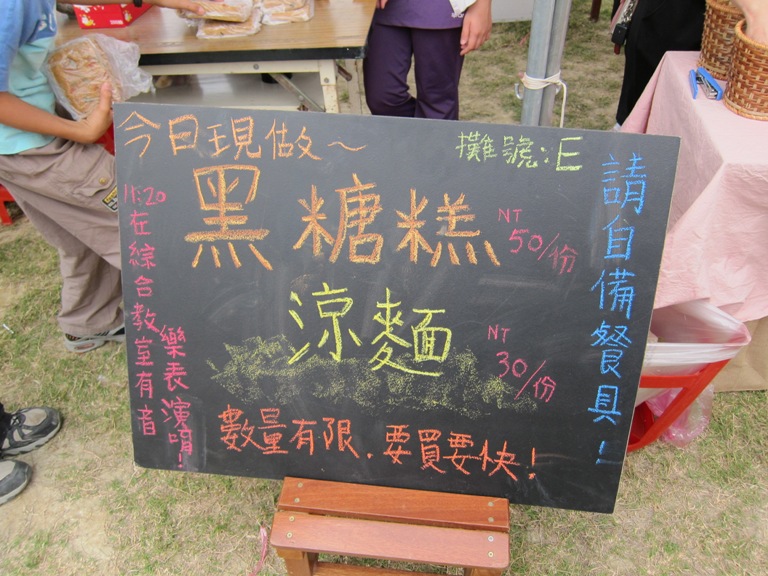 今日現做～
攤號:E
黑糖糕
NT
50/份
涼麵
NT
30/份
數量有限，要買要快！
請自備餐具！
11:20在綜合教室有音
樂表演唷！